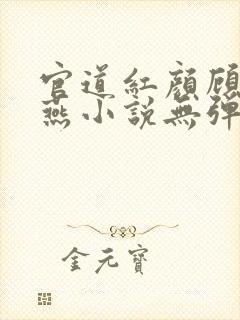 官道紅顏顧
燕小說無彈
金元寶